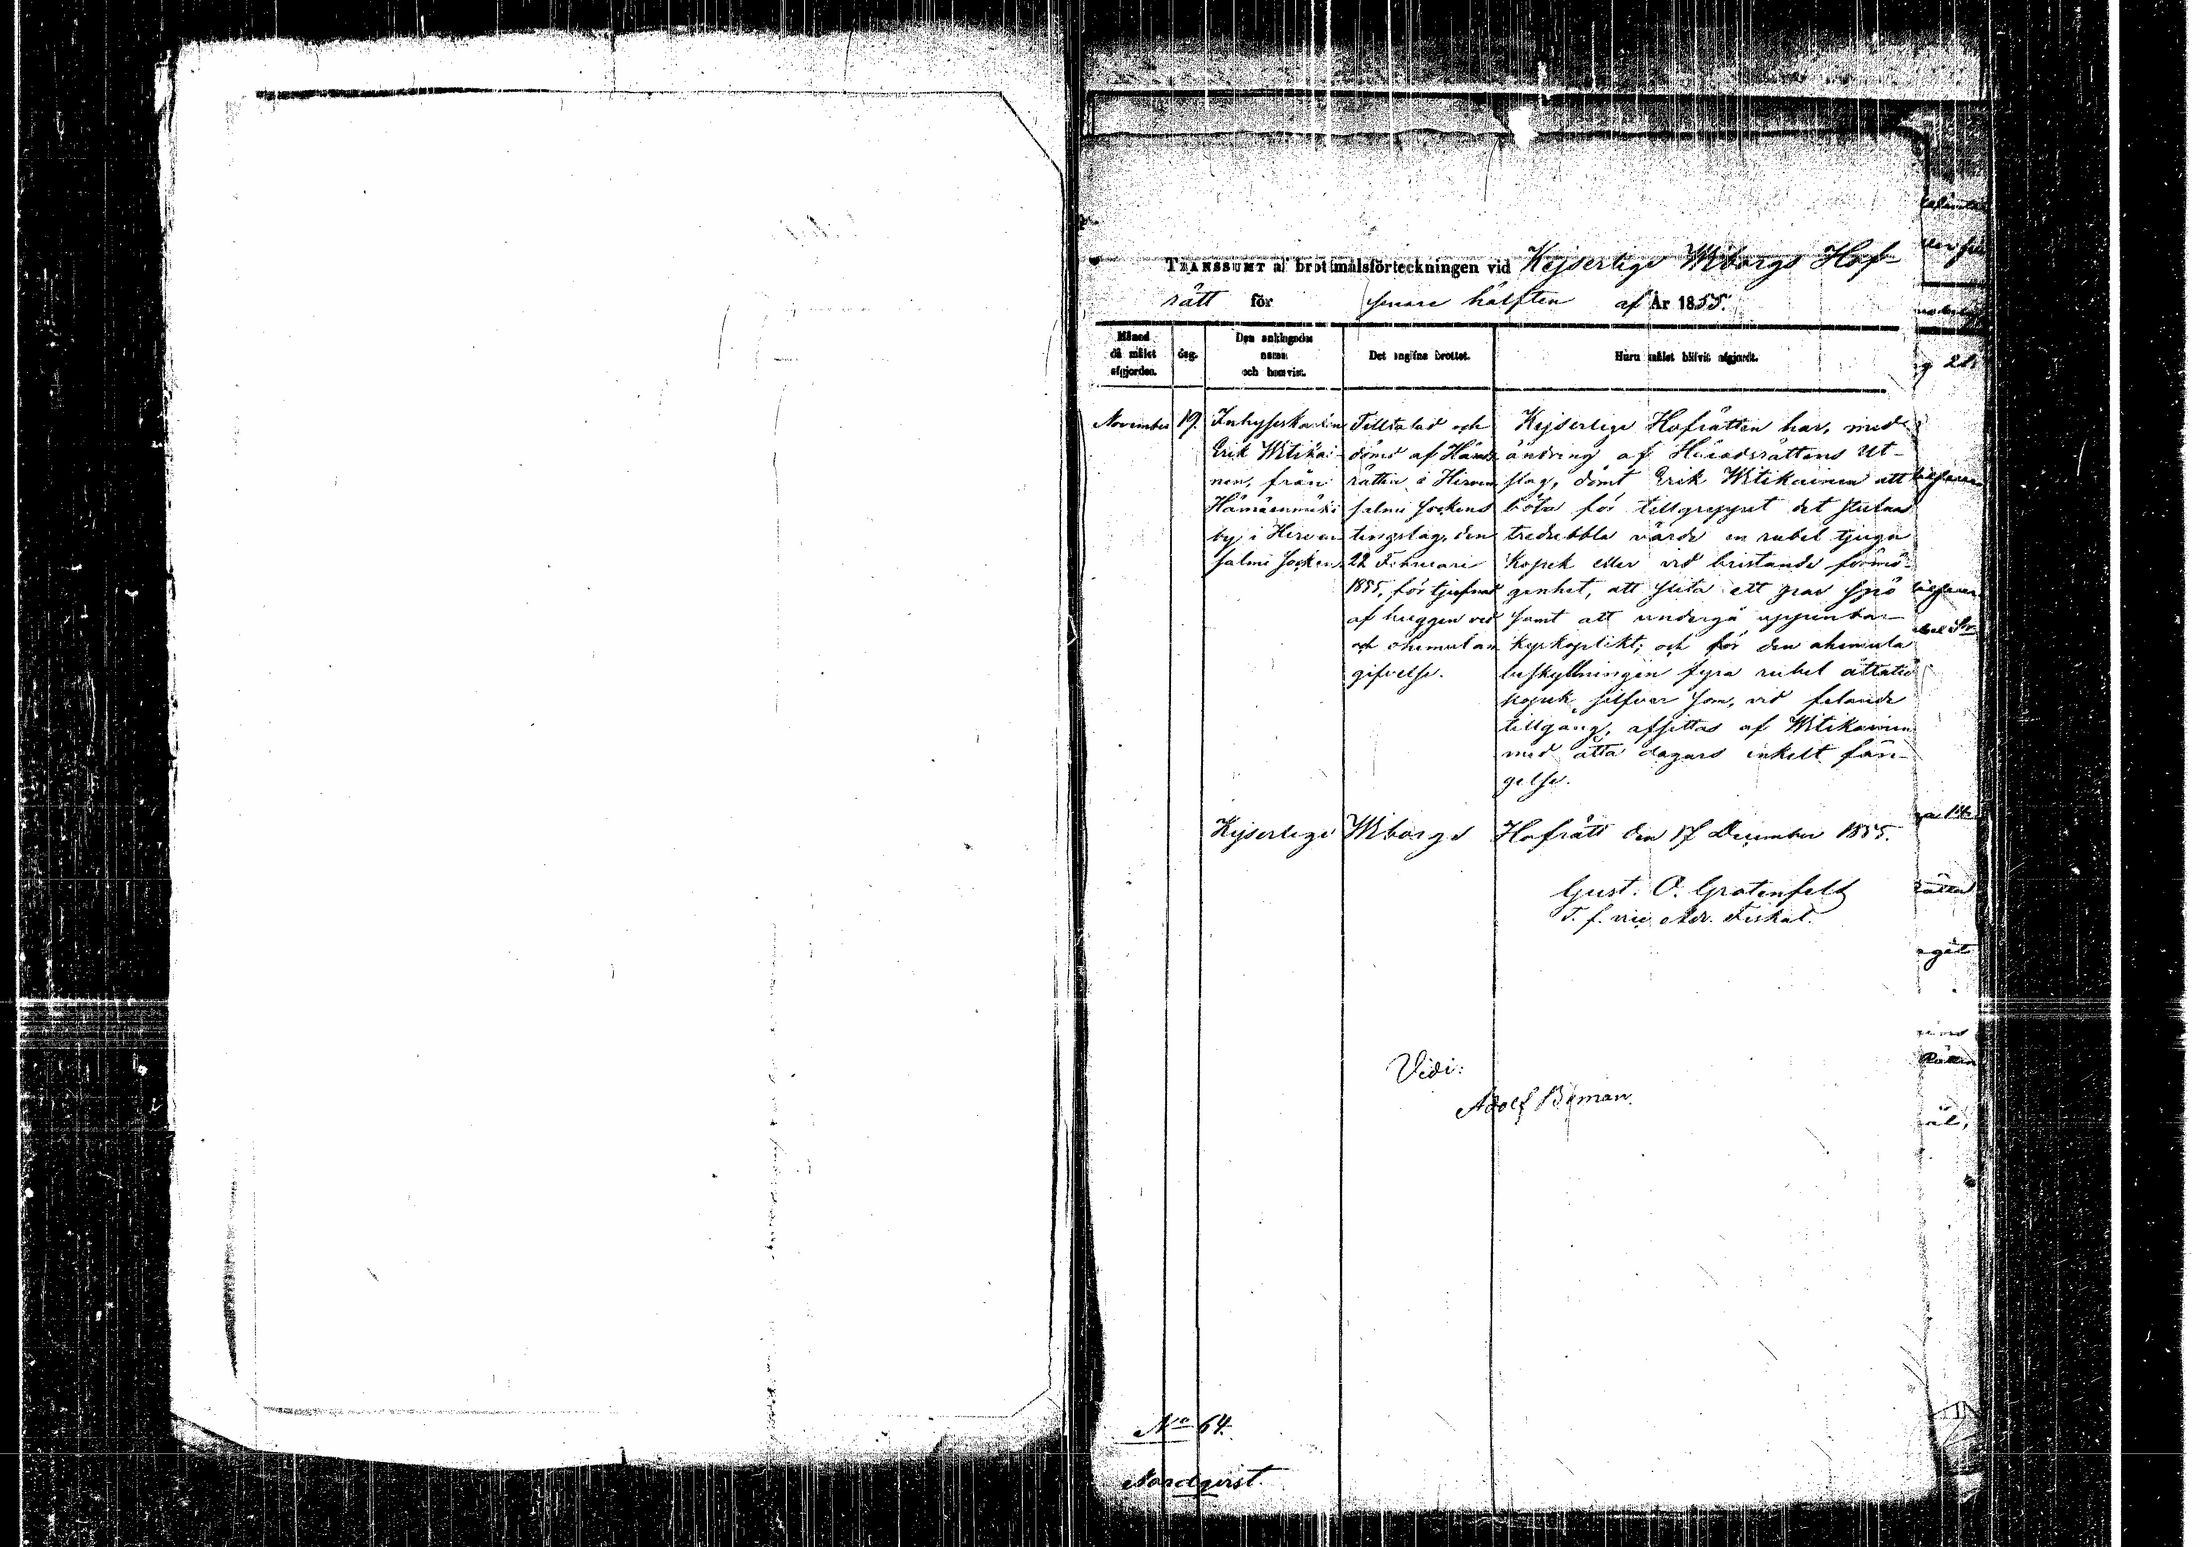 TRANSSUMT af brottmålsförteckningen vid Kejserlige Wiborgs Hof-
rätt för senare hälften af År 1855.
Månad
då målet
afgjordes.
dag.
Den anklagades
namn
och hemvist.
Det angifna brottet.
Huru målet blifvit afgjordt.
November
19.
Inhyseskarlen
Erik Witikai-
nen, från
Hämäenmäki
by i Hirven
salmi Socken
Tilltalad och
dömd af Härads
rätten i Hirven
salmi Sockens
tingslag, den
22 Februari
1855, för tjufnad
af huggen ved
och ohemul an
gifvelse.
Kejserlige Hofrätten har, med
ändring af Häradsrättens Ut-
slag, dömt Erik Witikainen att
böta för tillgreppet det stulnas
tredubbla värde en rubel tjugu
kopek eller vid bristande förmö-
genhet, att slita ett par spö
samt att undergå uppenbar
kyrkoplikt; och för den ohemula
beskyllningen fyra rubel åttatio
kopek silfver som, vid felande
tillgång, afsittas af Witikainen
med åtta dagars enkelt fän-
gelse.
Kejserlige Wiborgs Hofrätt den 17 December 1855.
Gust. O. Grotenfelt
T. f. vice Adv. Fiskal.
Vidi:
Adolf Byman.
No 64.
Nordqvist.